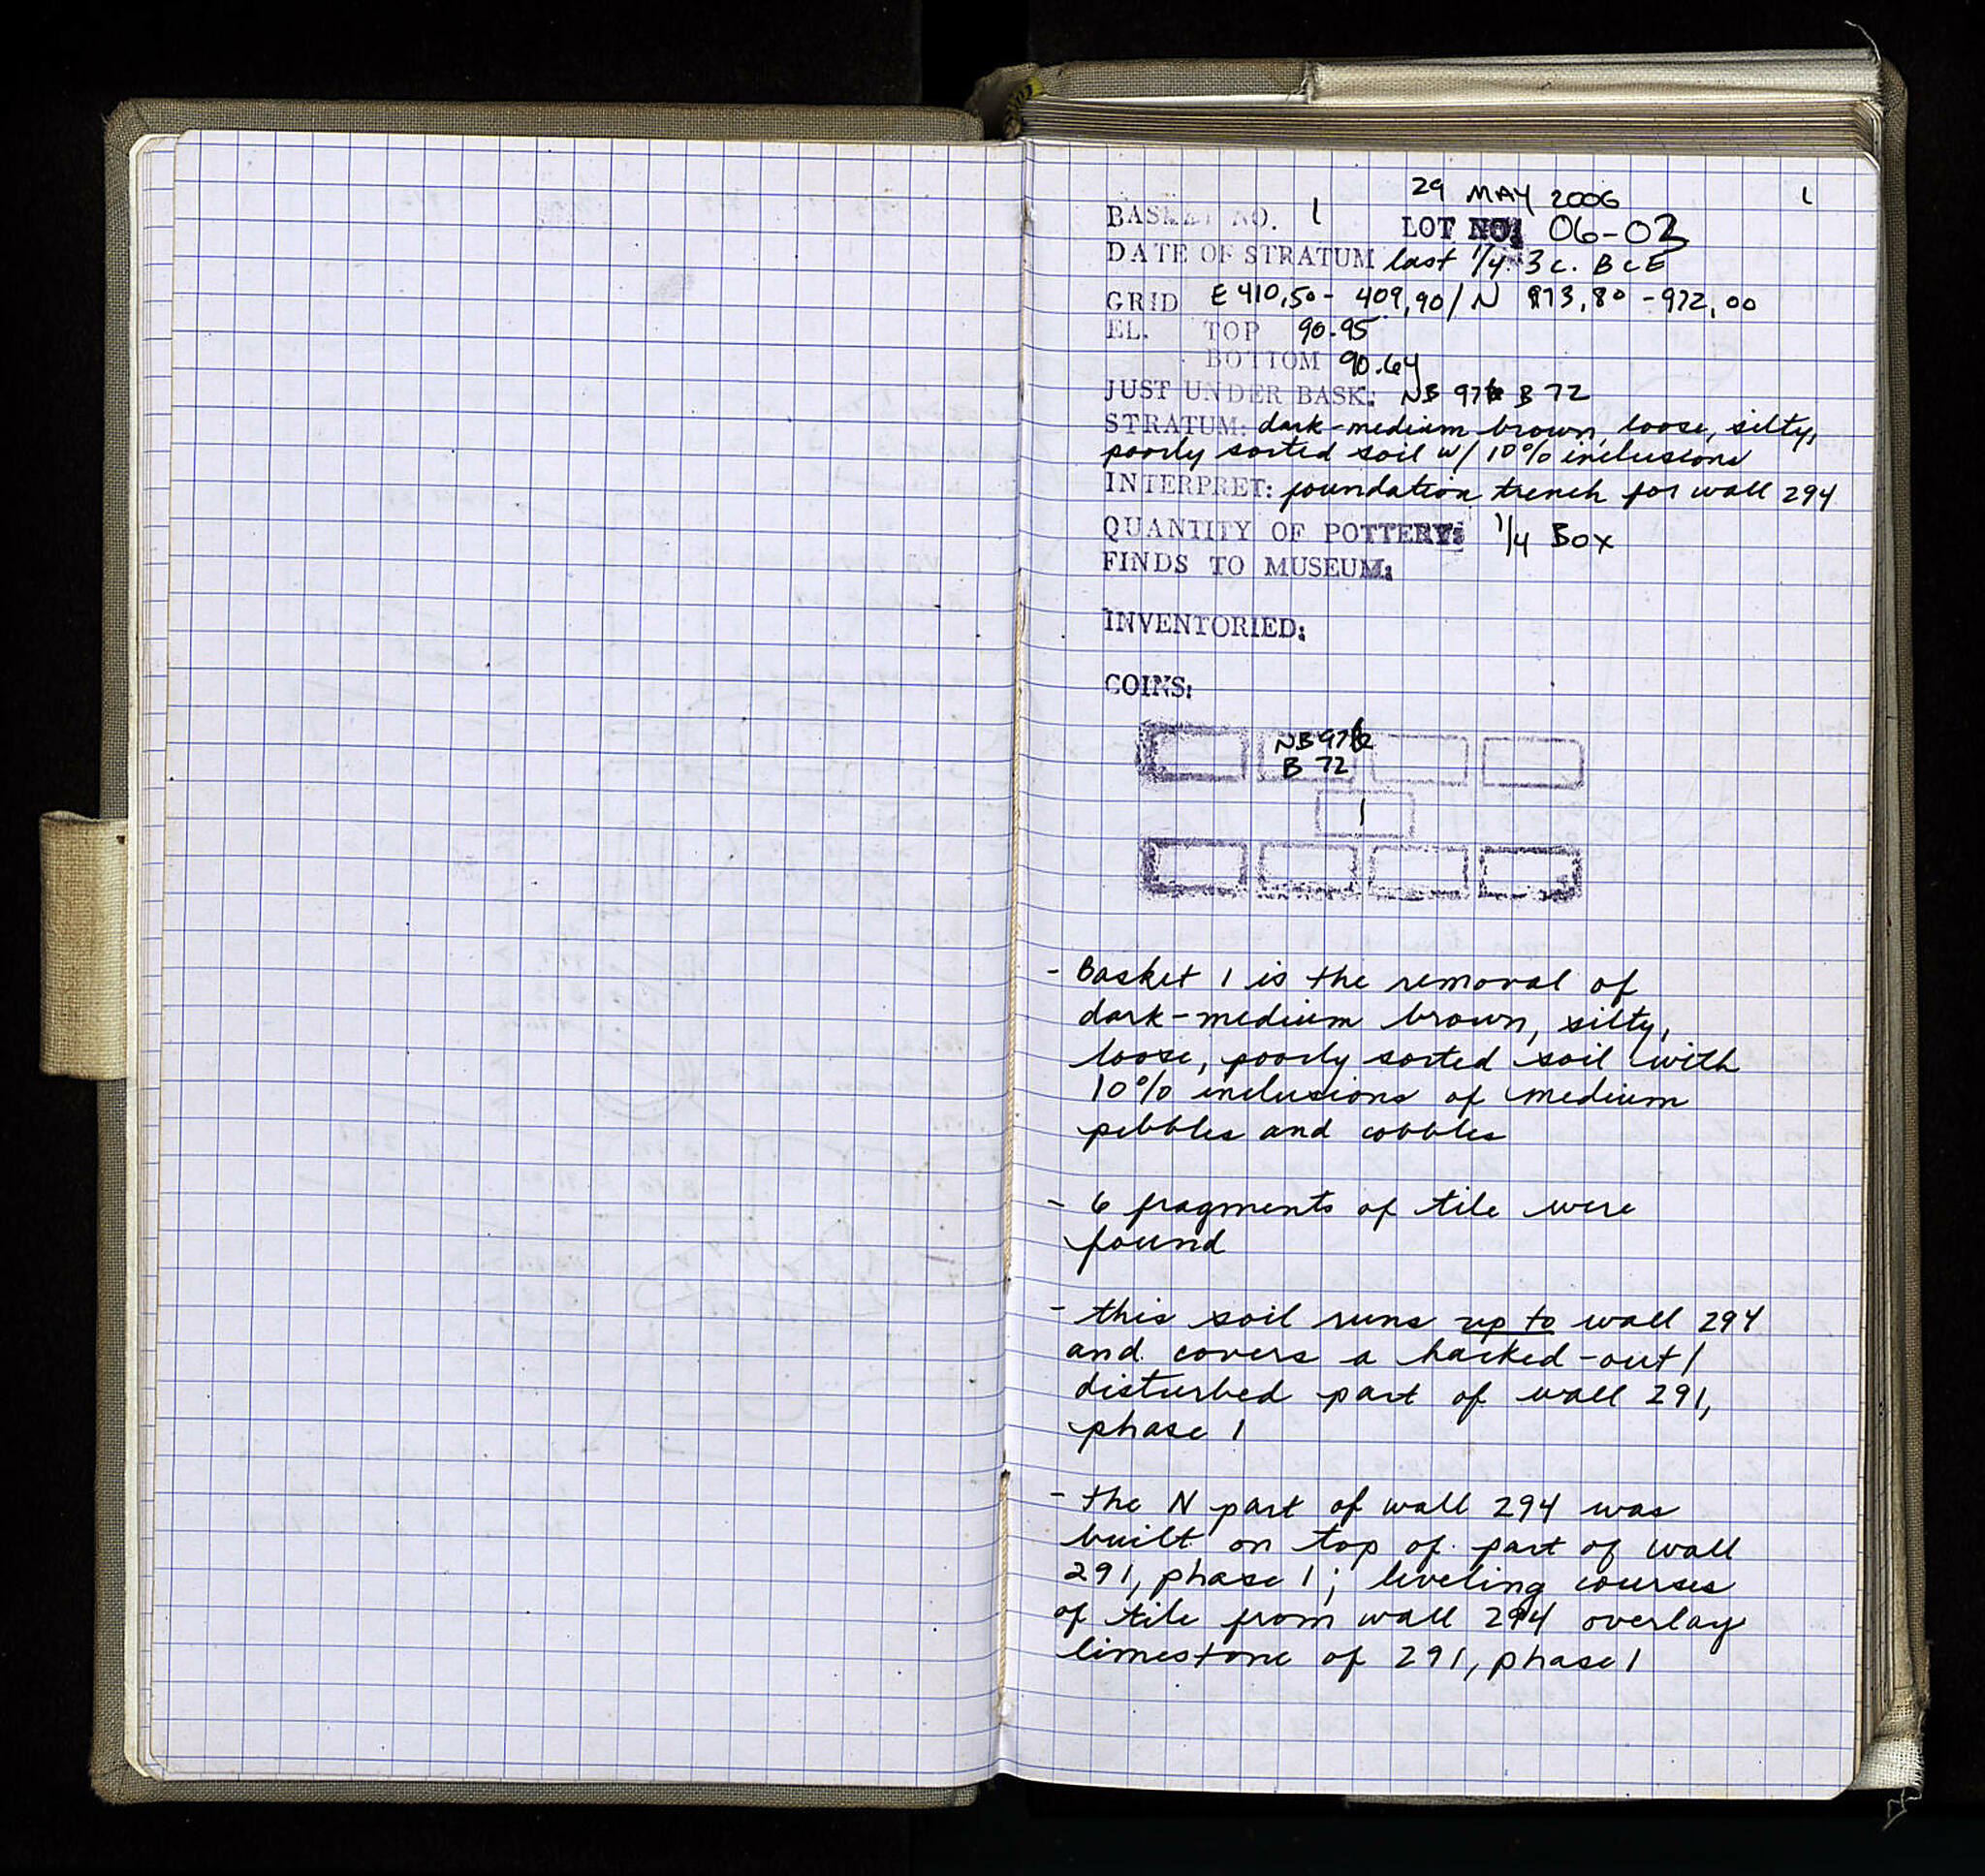 29 MAY 2006 1
BASKET NO. 1 LOT NO: 06-03
DATE OF STRATUM last 1/4 3 c. BCE
GRID E 410,50 - 409,90 / N 973,80 - 972,00
EL. TOP 90.95
BOTTOM 90.64
JUST UNDER BASK: NB B 72
STRATUM: dark-medium brown, loose, silty,
poorly sorted soil w/ 10% inclusions
INTERPRET: foundation trench for wall 294
QUANTITY OF POTTERY: 1/4 Box
FINDS TO MUSEUM:
INVENTORIED:
COINS:
NB
B 72
1
- Basket 1 is the removal of
dark-medium brown, silty,
loose, poorly sorted soil with
10% inclusions of medium
pebbles and cobbles
- 6 fragments of tile were
found
- this soil runs up to wall 294
and covers a hacked-out/
disturbed part of wall 291,
phase 1
- the N part of wall 294 was
built on top of part of wall
291, phase 1; leveling courses
of tile from wall 294 overlay
limestone of 291, phase 1